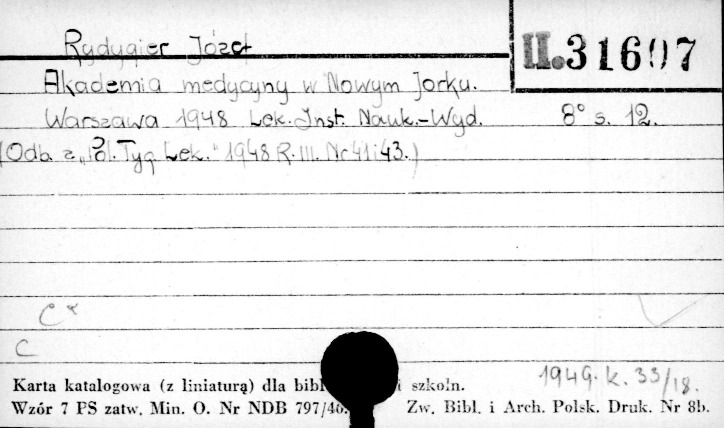 Rydygier Józef
II.31697
Akademia medycyny w Nowym Jorku.
Warszawa 1948 Lek. Inst. Nauk.-Wyd. 8° s. 12.
(Odb. z „Pol. Tyg. Lek." 1948 R. III. Nr 41 i 43.)
C
C
1949. k. 33/18.
Karta katalogowa (z liniaturą) dla bibl i szkoln.
Wzór 7 PS zatw. Min. O. Nr NDB 797/46. Zw. Bibl. i Arch. Polsk. Druk. Nr 8b.